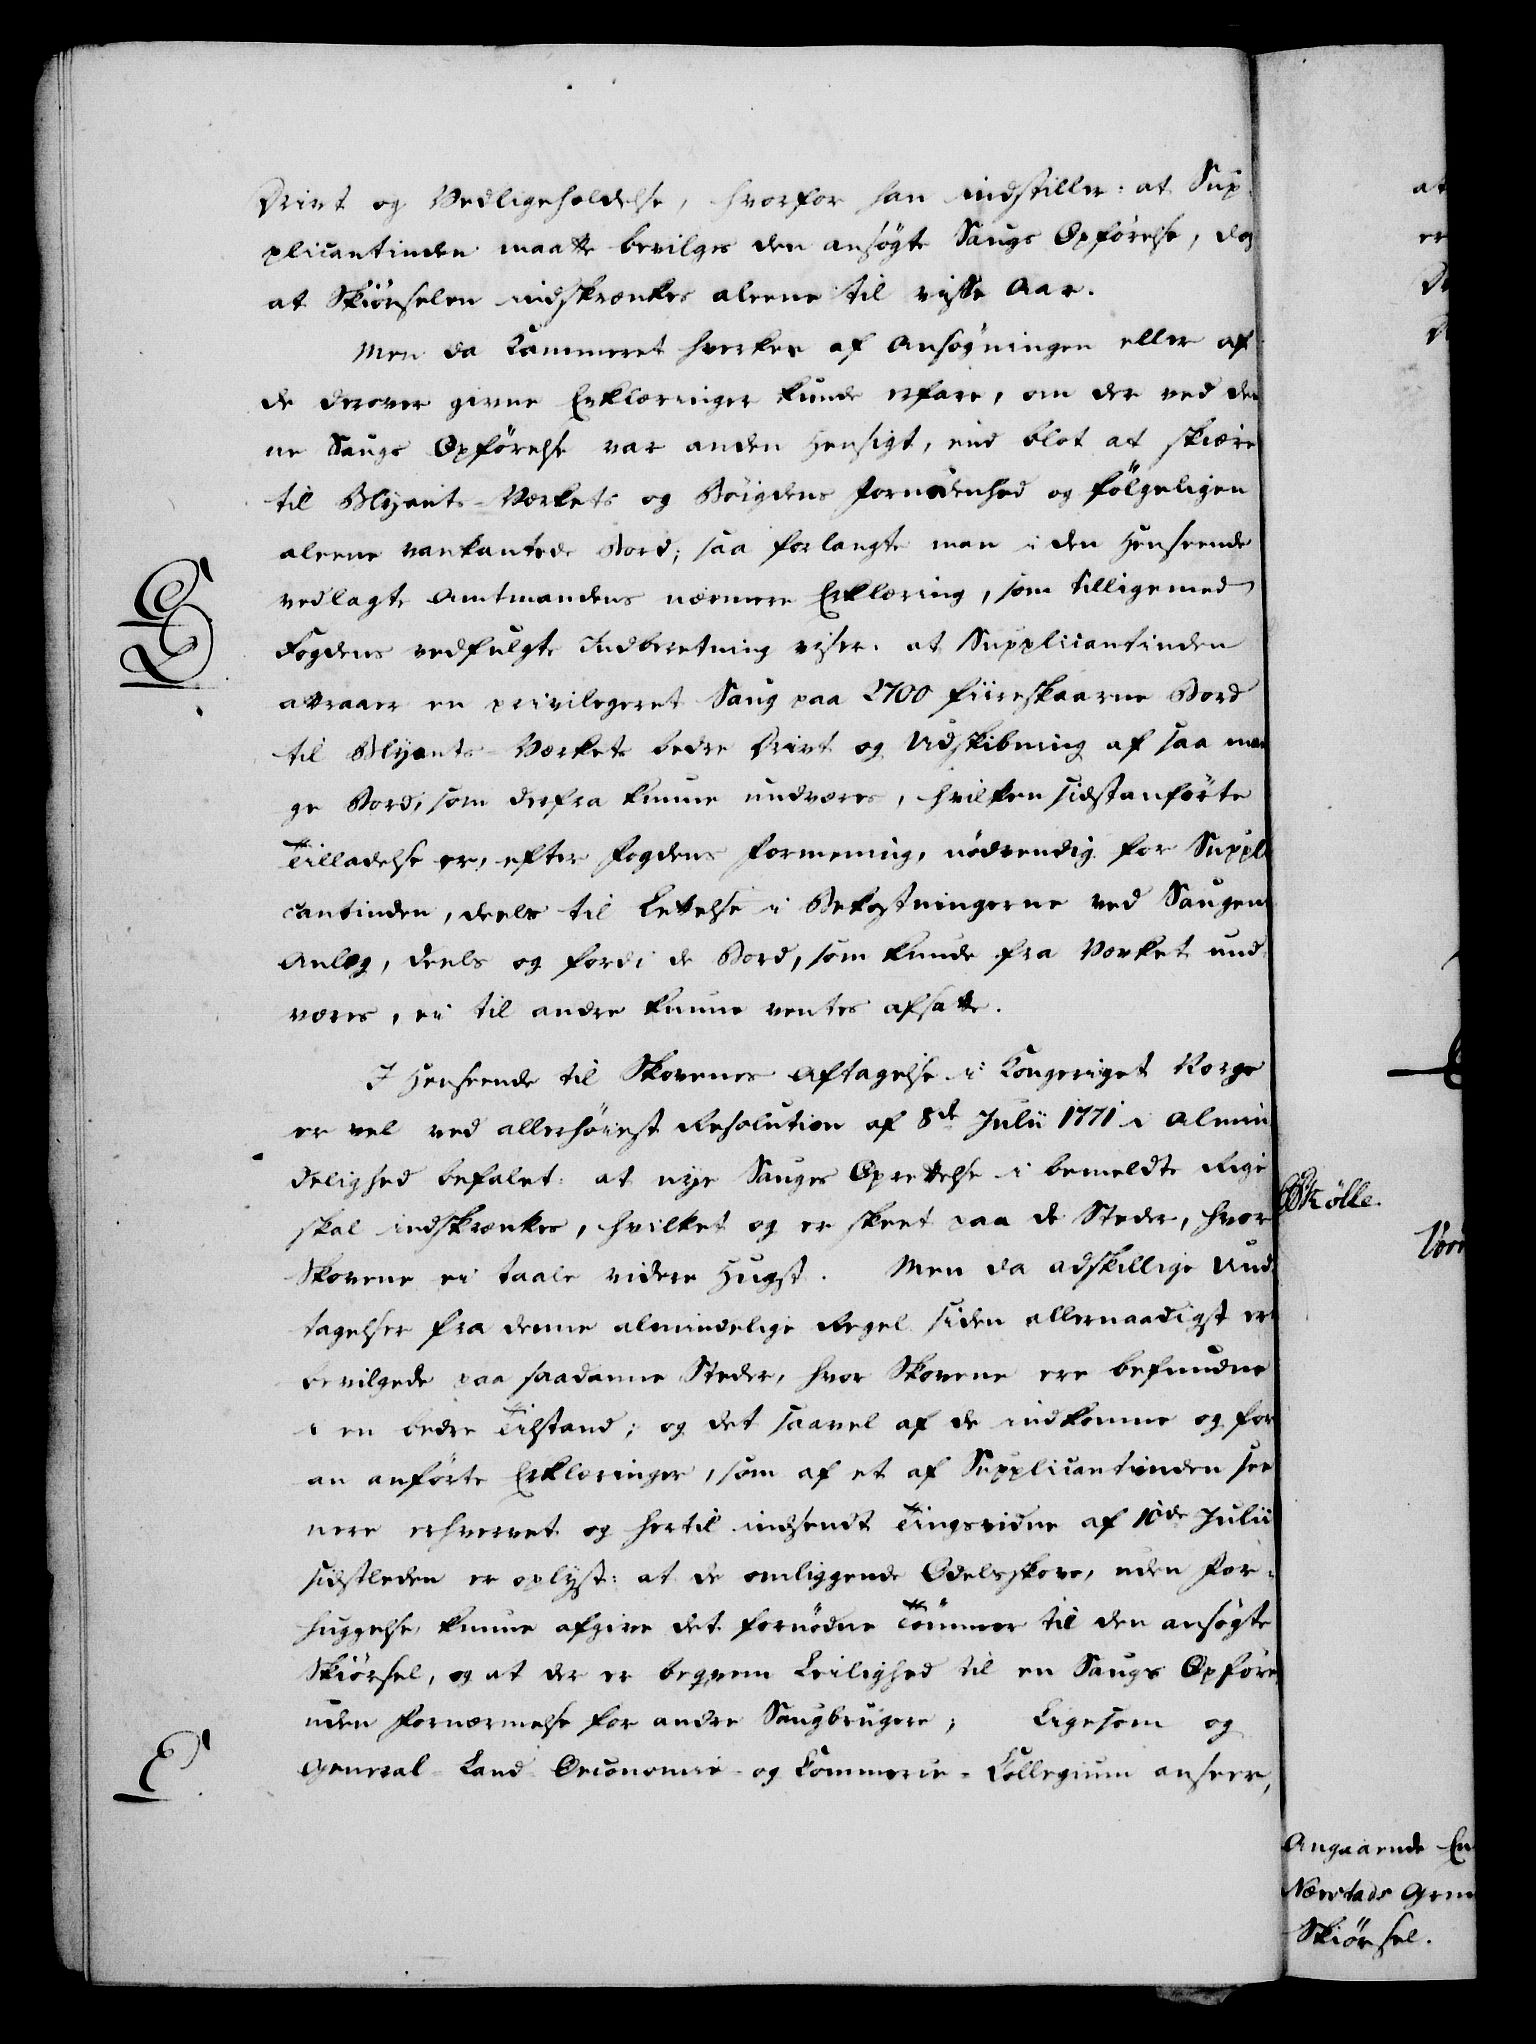 Drivt og Vedligeholdelse, hvorfor han indstiller: at Sup-
plicantinden maatte bevilges den ansøgte Saugs Opførelse, dog
at Skiørselen indskrænkes aleene til visse Aar.
Men da Kammeret hverken af Ansøgningen eller af
de derover givne Erklæringer kunde erfare, om der ved den
ne Saugs Opførelse var anden Hensigt, end blot at skiære
til Blyants-Værkets og Bøigdens Fornødenhed og følgeligen
aleene vankantede Bord; saa forlangte man i den Henseende
vedlagte Amtmandens nærmere Erklæring, som tilligemed
D.
Fogdens vedfulgte Indberetning viser: at Supplicantinden
attraaer en privilegeret Saug paa 2700 fiireskaarne Bord
til Blyants-Værkets bedre Drivt og Udskibning af saa man
ge Bord, som derfra kunne undværes, hvilken sidstanførte
Tilladelse er, efter Fogdens Formening, nødvendig for Suppli
cantinden, deels til Lettelse i Bekostningerne ved Saugens
Anlæg, deels og fordi de Bord, som kunde fra Værket und-
væres, ei til andre kunne ventes afsatte.
I Henseende til Skovenes Aftagelse i Kongeriget Norge
er vel ved allerhøieste Resolution af 8de Julii 1771 i Almin
delighed befalet: at nye Sauges Oprettelse i bemeldte Rige
skal indskrænkes, hvilket og er skeet paa de Steder, hvor
Skovene ei taale videre Hugst. Men da adskillige Und
tagelser fra denne almindelige Regel siden allernaadigst er
bevilgede paa saadanne Steder, hvor Skovene ere befundne
i en bedre Tilstand; og det saavel af de indkomne og for
an anførte Erklæringer, som af et af Supplicantinden see
nere erhvervet og hertil indsendt Tingsvidne af 10de Julii
sidstleden er oplyst: at de omliggende Odelsskove, uden For-
huggelse, kunne afgive det fornødne Tømmer til den ansøgte
Skiørsel, og at der er beqvem Leilighed til en Saugs Opføre
uden Fornærmelse for andre Saugbrugere; Ligesom og
E.
General-Land-Oeconomie- og Commerce-Collegium anseer,
at
er
Skölle.
Angaaende En
Skiørsel.